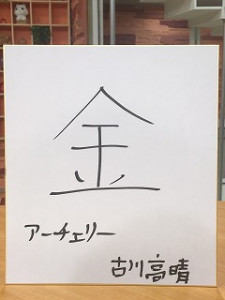 金
アーチェリー
古川高晴